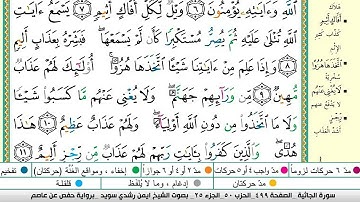 ٱللَّهِ وَءَايَٰتِهِۦ يُؤْمِنُونَ ٦ وَيْلٌ لِّكُلِّ أَفَّاكٍ أَثِيمٍ ٧ يَسْمَعُ ءَايَٰتِ
ٱللَّهِ تُتْلَىٰ عَلَيْهِ ثُمَّ يُصِرُّ مُسْتَكْبِرًا كَأَن لَّمْ يَسْمَعْهَا فَبَشِّرْهُ بِعَذَابٍ أَلِيمٍ
٨ وَإِذَا عَلِمَ مِنْ ءَايَٰتِنَا شَيْـًٔا ٱتَّخَذَهَا هُزُوًا أُو۟لَٰٓئِكَ لَهُمْ عَذَابٌ
مُّهِينٌ ٩ مِّن وَرَآئِهِمْ جَهَنَّمُ وَلَا يُغْنِى عَنْهُم مَّا كَسَبُوا۟ شَيْـًٔا
وَلَا مَا ٱتَّخَذُوا۟ مِن دُونِ ٱللَّهِ أَوْلِيَآءَ وَلَهُمْ عَذَابٌ عَظِيمٌ ١٠
هَٰذَا هُدًى وَٱلَّذِينَ كَفَرُوا۟ بِـَٔايَٰتِ رَبِّهِمْ لَهُمْ عَذَابٌ مِّن رِّجْزٍ أَلِيمٌ ١١
أفاك أثيم
كذاب كثير
الإثم
هزوا
سخرية
أشد العذاب
مدّ ٦ حركات لزوما
مدّ ٢ أو ٤ أو ٦ جوازا
إخفاء، ومواقع الغُنَّة (حركتان)
تفخيم
مدّ واجب ٤ أو ٥ حركات
مدّ حركتان
إدغام، وما لا يُلفَظ
قلقلة
سورة الجاثية_الصفحة ٤٩٩_الحزب ٥٠_الجزء ٢٥_ بصوت الشيخ ايمن رشدي سويد_برواية حفص عن عاصم